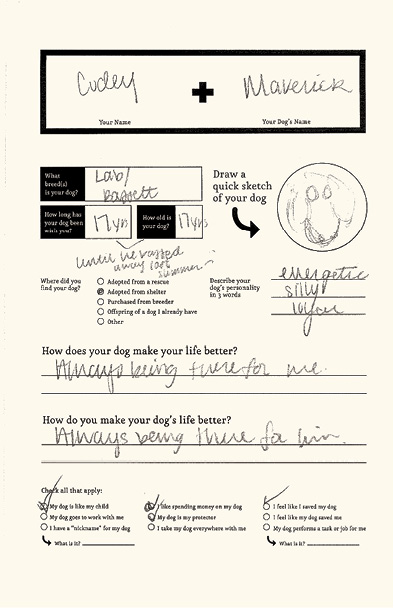 Codey + Maverick
Your Name Your Dog's Name
What breed(s) is your dog? Lab/ Bassett
Draw a quick sketch of your dog
How long has your dog been with you? 17 yrs How old is your dog? 17 yrs
until he passed away last summer
Where did you find your dog?
Adopted from a rescue
Adopted from shelter
Purchased from breeder
Offspring of a dog I already have
Other
Describe your dog's personality in 3 words
energetic
silly
loyal
How does your dog make your life better?
Always being there for me.
How do you make your dog's life better?
Always being there for him.
Check all that apply:
My dog is like my child
My dog goes to work with me
I have a "nickname" for my dog
What is it?
I like spending money on my dog
My dog is my protector
I take my dog everywhere with me
I feel like I saved my dog
I feel like my dog saved me
My dog performs a task or job for me
What is it?